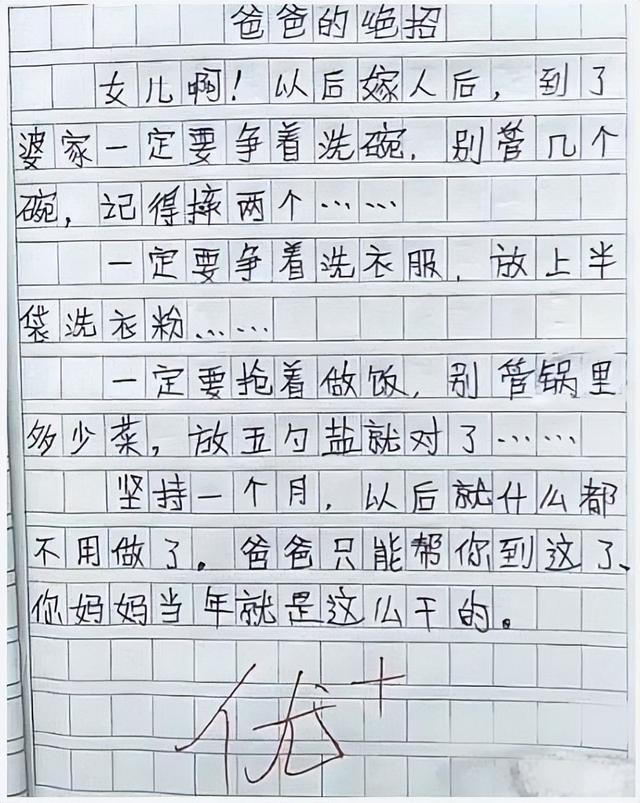 爸爸的绝招
女儿啊！以后嫁人后，到了
婆家一定要争着洗碗，别管几个
碗，记得摔两个……
一定要争着洗衣服，放上半
袋洗衣粉……
一定要抢着做饭，别管锅里
多少菜，放五勺盐就对了……
坚持一个月，以后就什么都
不用做了。爸爸只能帮你到这了、
你妈妈当年就是这么干的。
优+